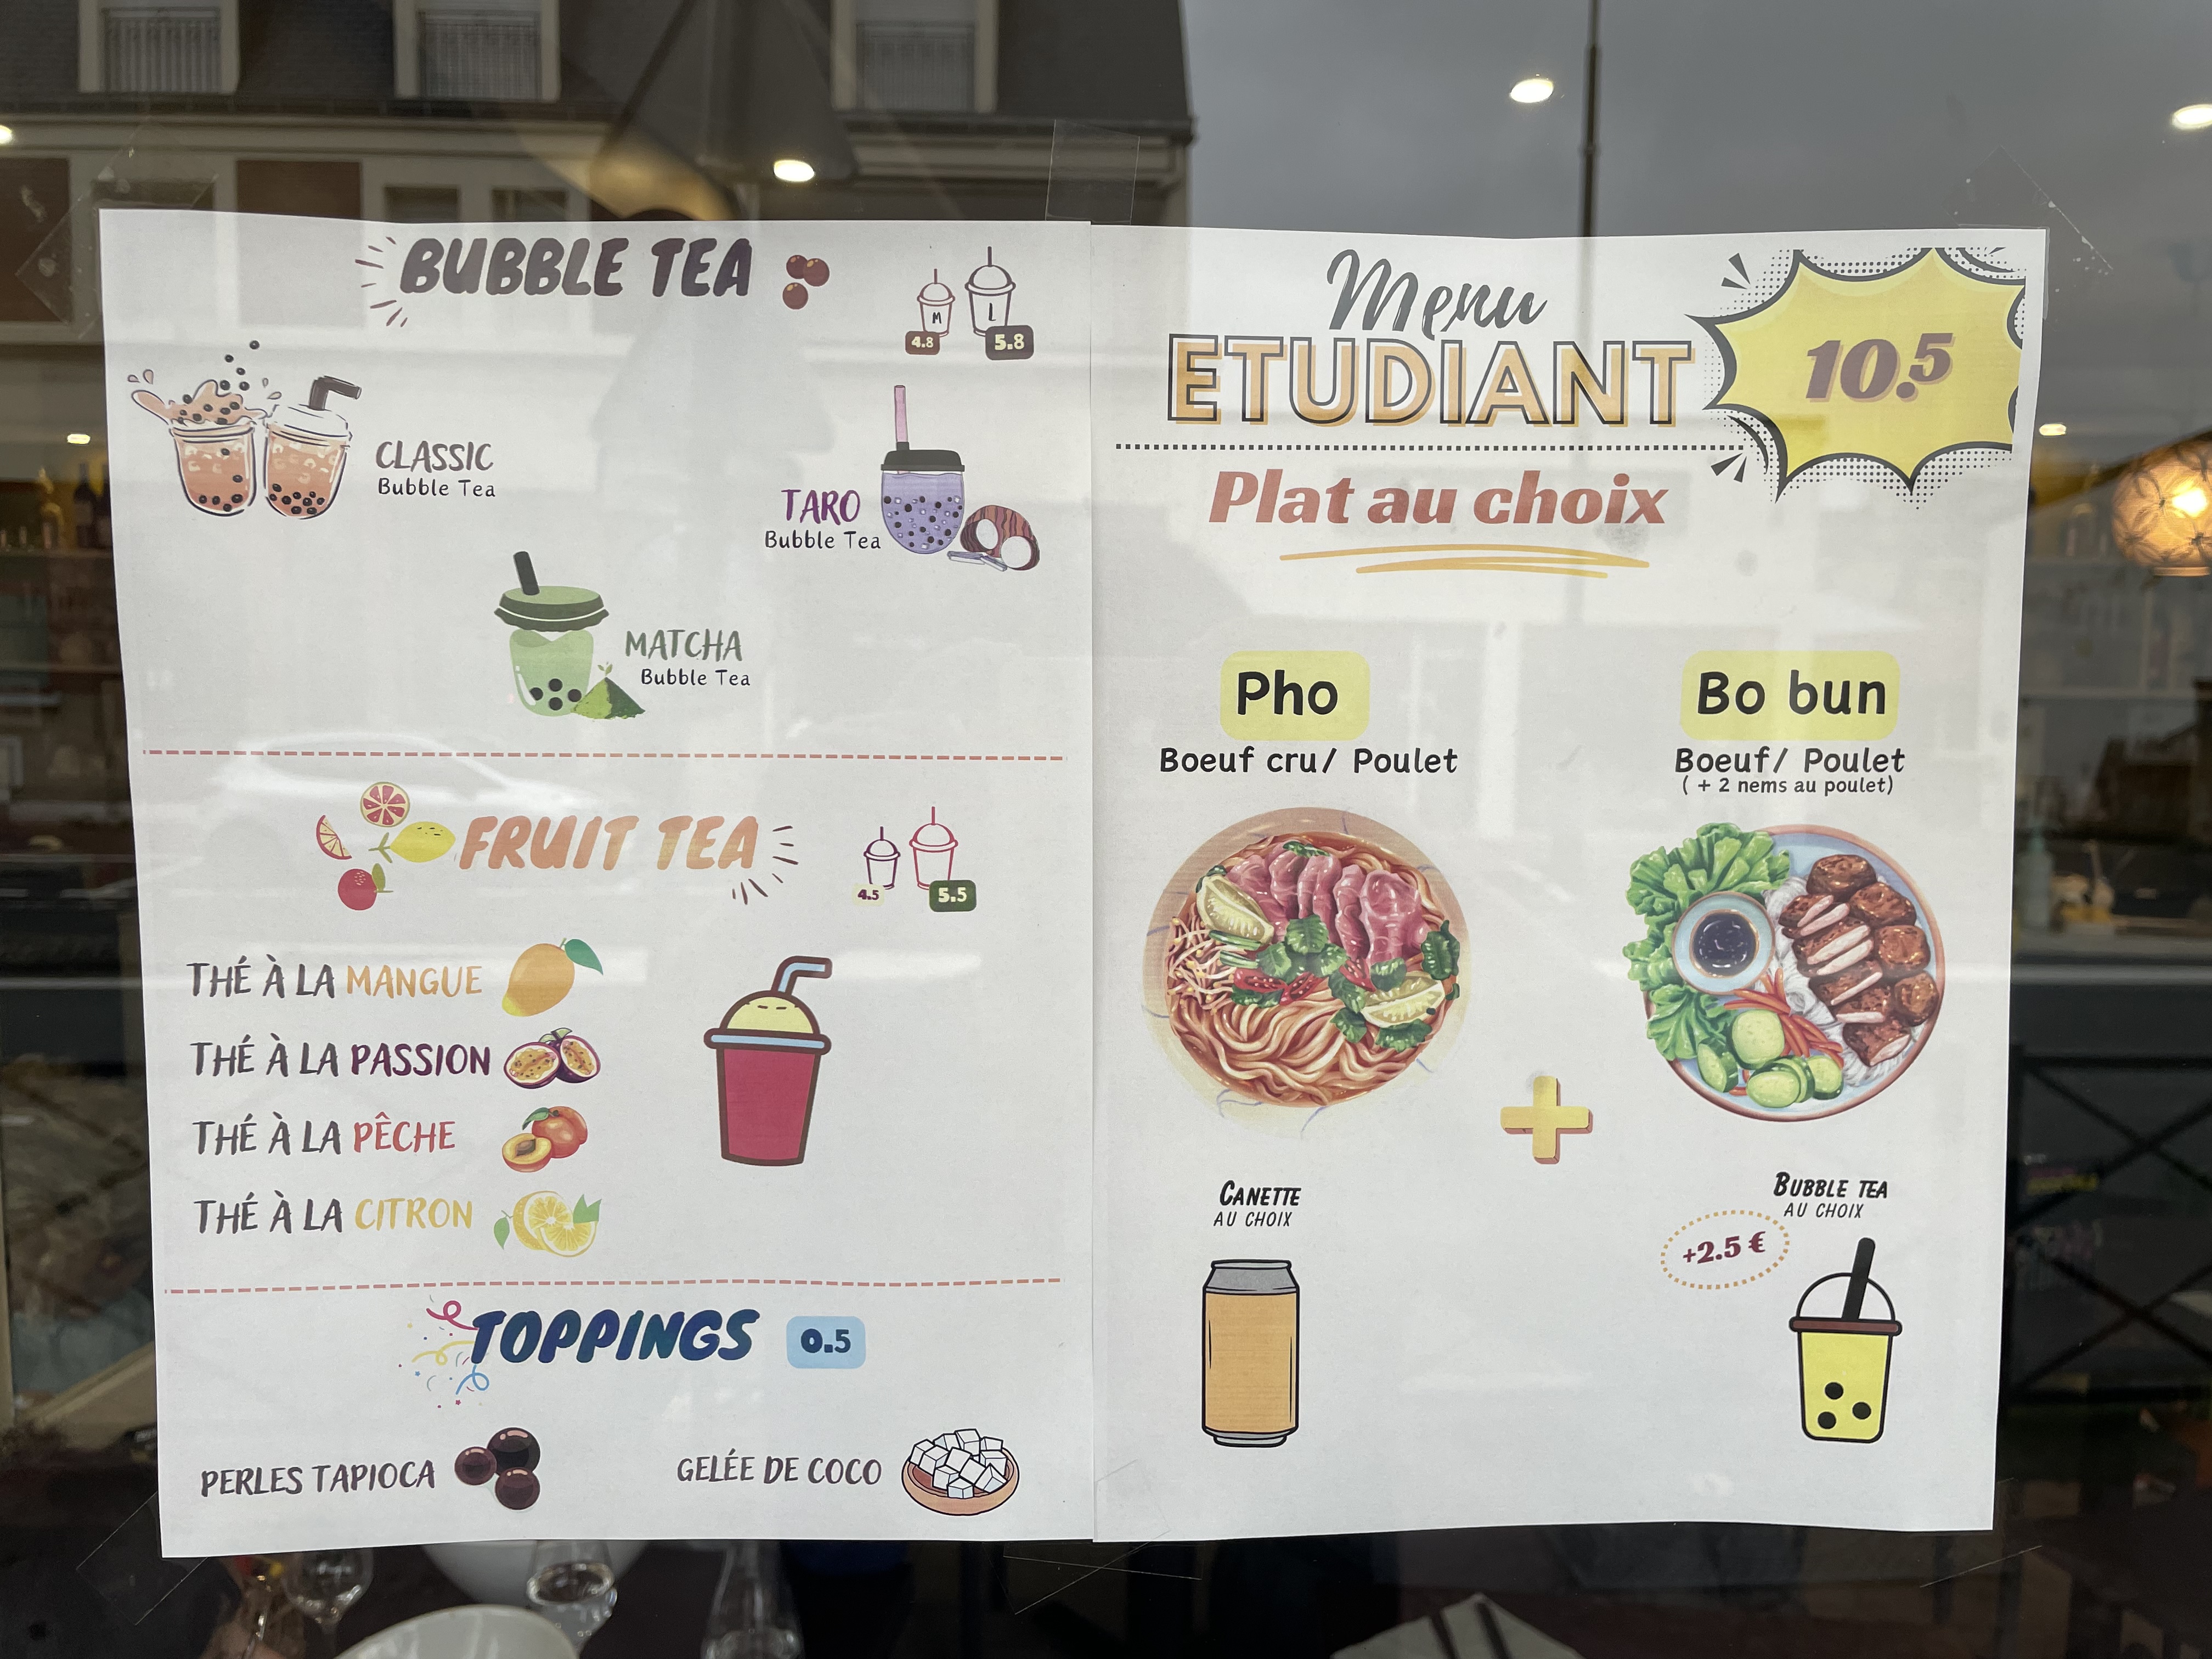 BUBBLE TEA
M
L
4.8
5.8
CLASSIC
Bubble Tea
TARO
Bubble Tea
MATCHA
Bubble Tea
FRUIT TEA
4.5
5.5
THÉ À LA MANGUE
THÉ À LA PASSION
THÉ À LA PÊCHE
THÉ À LA CITRON
TOPPINGS 0.5
PERLES TAPIOCA
GELÉE DE COCO
Menu
ETUDIANT
10.5
Plat au choix
Pho
Boeuf cru/ Poulet
Bo bun
Boeuf/ Poulet
( + 2 nems au poulet)
+
CANETTE
AU CHOIX
BUBBLE TEA
AU CHOIX
+2.5 €